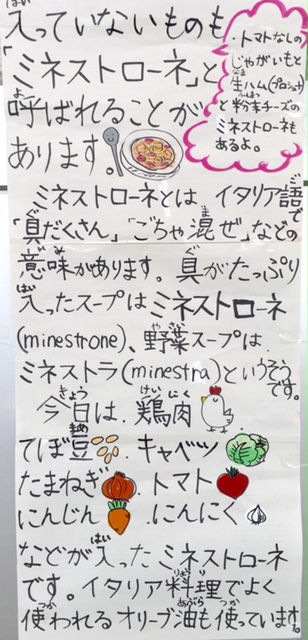 入っていないものも
「ミネストローネ」と
呼ばれることが
あります。
・トマトなしの
じゃがいもと
生ハム(プロシュート)
と粉末チーズの
ミネストローネも
あるよ。
ミネストローネとは イタリア語で
「具だくさん」「ごちゃ混ぜ」などの
意味があります。具がたっぷり
入ったスープはミネストローネ
(minestrone)、野菜スープは
ミネストラ(minestra)というそう
です。
今日は、鶏肉
てぼ豆、キャベツ
たまねぎ、トマト
にんじん、にんにく
などが入ったミネストローネ
です。イタリア料理でよく
使われるオリーブ油も使っています。